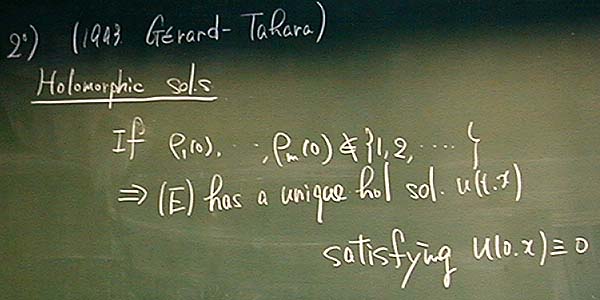 2°) (1993 Gérard-Tahara)
Holomorphic sols
If ρ₁(0), ..., ρₘ(0) ∉ {1, 2, ..... }
⇒ (E) has a unique hol sol. u(t.x)
satisfying u(0.x) ≡ 0